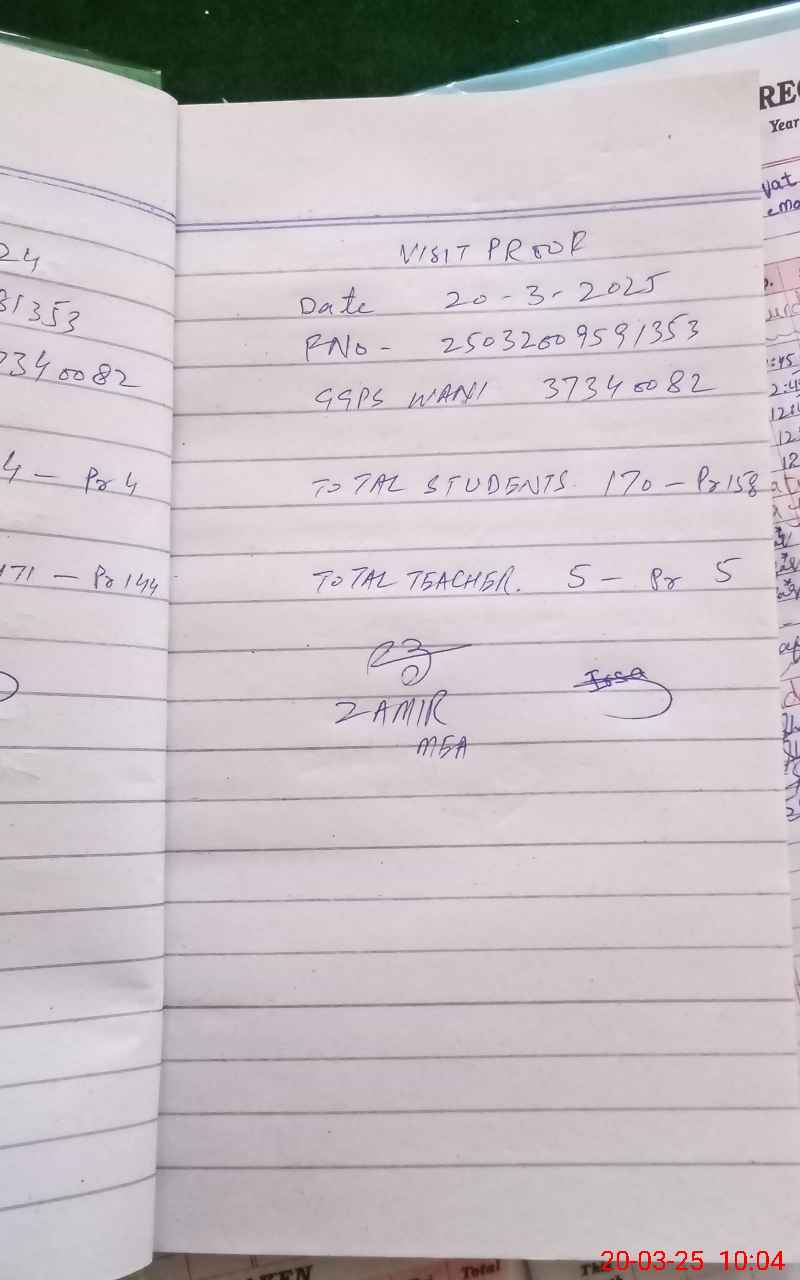 24
81353
7340082
4 - Pr 4
171 - Pr 144
VISIT PROOF
Date 20-3-2025
RNo - 25032009591353
GGPS WANI 37340082
TOTAL STUDENTS. 170 - Pr 158
TOTAL TEACHER. 5 - Pr 5
ZAMIR
MEA
REC
Year
Total
20-03-25 10:04